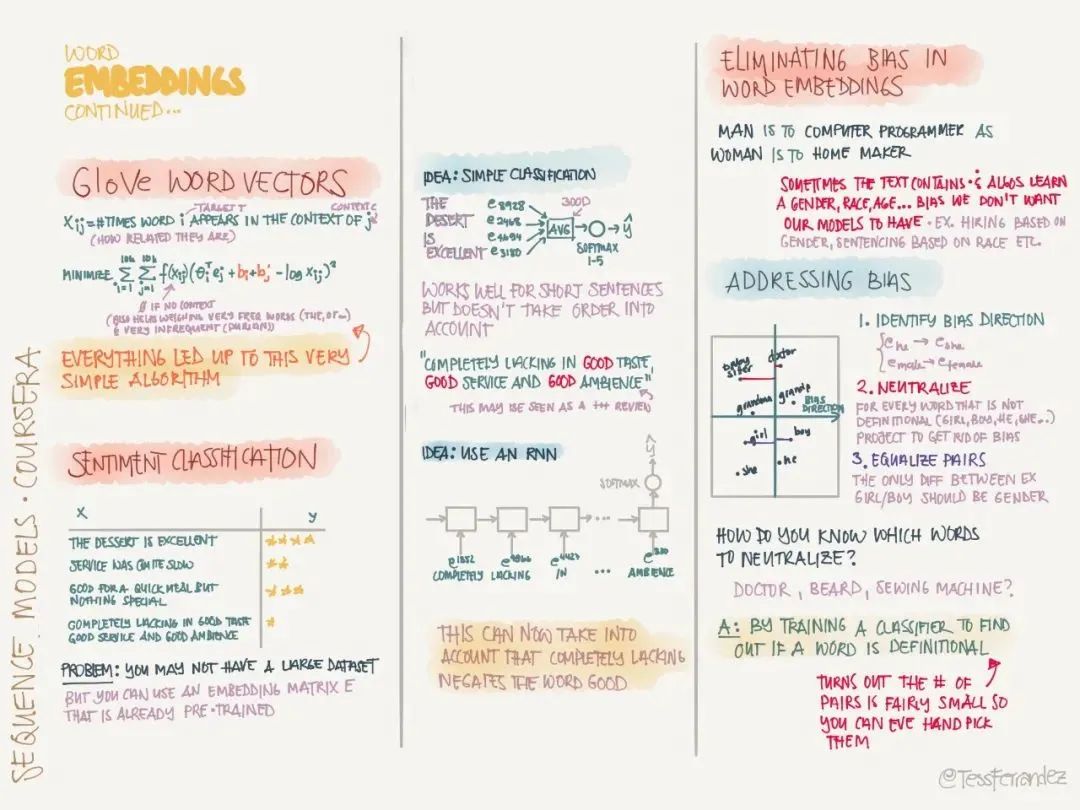 WORD
EMBEDDINGS
CONTINUED...
GloVe WORD VECTORS
TARGET T
CONTEXT C
Xij = # TIMES WORD i APPEARS IN THE CONTEXT OF j
(HOW RELATED THEY ARE)
MINIMIZE 10k∑i=1 10k∑j=1 f(Xij)(θiᵀej + bi + bj' - log Xij)²
IF NO CONTEXT
(ALSO HELPS WEIGHING VERY FREQ WORDS (THE, OF...)
& VERY INFREQUENT (DURIAN))
EVERYTHING LED UP TO THIS VERY
SIMPLE ALGORITHM
SENTIMENT CLASSIFICATION
X y
THE DESSERT IS EXCELLENT ★★★★
SERVICE WAS QUITE SLOW ★★
GOOD FOR A QUICK MEAL BUT
NOTHING SPECIAL ★★★
COMPLETELY LACKING IN GOOD TASTE
GOOD SERVICE AND GOOD AMBIENCE ★
PROBLEM: YOU MAY NOT HAVE A LARGE DATASET
BUT YOU CAN USE AN EMBEDDING MATRIX E
THAT IS ALREADY PRE-TRAINED
SEQUENCE MODELS · COURSERA
IDEA: SIMPLE CLASSIFICATION
THE e8928
DESERT e2468
IS e4694
EXCELLENT e3180
300D
AVG
ŷ
SOFTMAX
1-5
WORKS WELL FOR SHORT SENTENCES
BUT DOESN'T TAKE ORDER INTO
ACCOUNT
"COMPLETELY LACKING IN GOOD TASTE,
GOOD SERVICE AND GOOD AMBIENCE"
THIS MAY BE SEEN AS A +++ REVIEW
IDEA: USE AN RNN
ŷ
SOFTMAX
...
e1852 e4966 e4427 ... e330
COMPLETELY LACKING IN ... AMBIENCE
THIS CAN NOW TAKE INTO
ACCOUNT THAT COMPLETELY LACKING
NEGATES THE WORD GOOD
ELIMINATING BIAS IN
WORD EMBEDDINGS
MAN IS TO COMPUTER PROGRAMMER AS
WOMAN IS TO HOME MAKER
SOMETIMES THE TEXT CONTAINS & ALGOS LEARN
A GENDER, RACE, AGE... BIAS WE DON'T WANT
OUR MODELS TO HAVE · EX. HIRING BASED ON
GENDER, SENTENCING BASED ON RACE ETC.
ADDRESSING BIAS
baby
sitter
doctor
grandma
grandpa
BIAS
DIRECTION
girl
boy
she
he
1. IDENTIFY BIAS DIRECTION
ehe → eshe
emale → efemale
2. NEUTRALIZE
FOR EVERY WORD THAT IS NOT
DEFINITIONAL (GIRL, BOY, HE, SHE...)
PROJECT TO GET RID OF BIAS
3. EQUALIZE PAIRS
THE ONLY DIFF BETWEEN EX
GIRL/BOY SHOULD BE GENDER
HOW DO YOU KNOW WHICH WORDS
TO NEUTRALIZE?
DOCTOR, BEARD, SEWING MACHINE?
A: BY TRAINING A CLASSIFIER TO FIND
OUT IF A WORD IS DEFINITIONAL
TURNS OUT THE # OF
PAIRS IS FAIRLY SMALL SO
YOU CAN EVE HAND PICK
THEM
@TessFerrandez